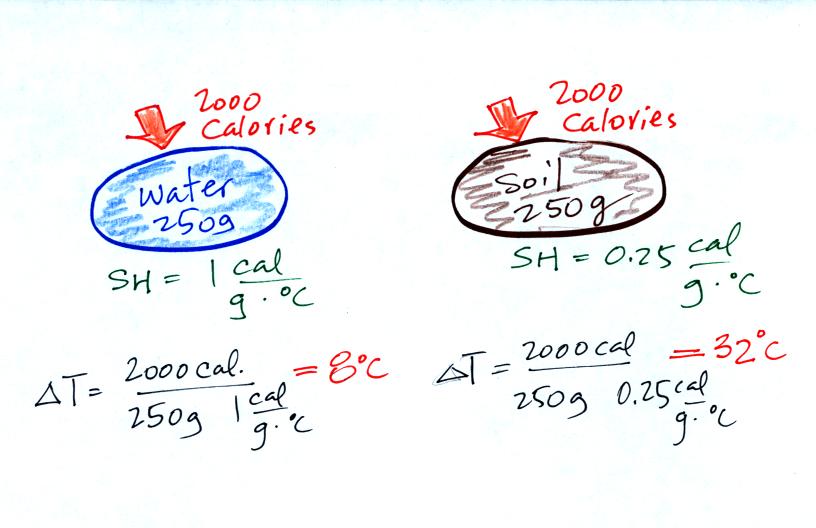 2000
Calories
Water
250g
SH = 1 cal
g · °C
ΔT = 2000 cal. = 8°C
250g 1 cal
g · °C
2000
Calories
Soil
250g
SH = 0.25 cal
g · °C
ΔT = 2000 cal = 32°C
250g 0.25 cal
g · °C